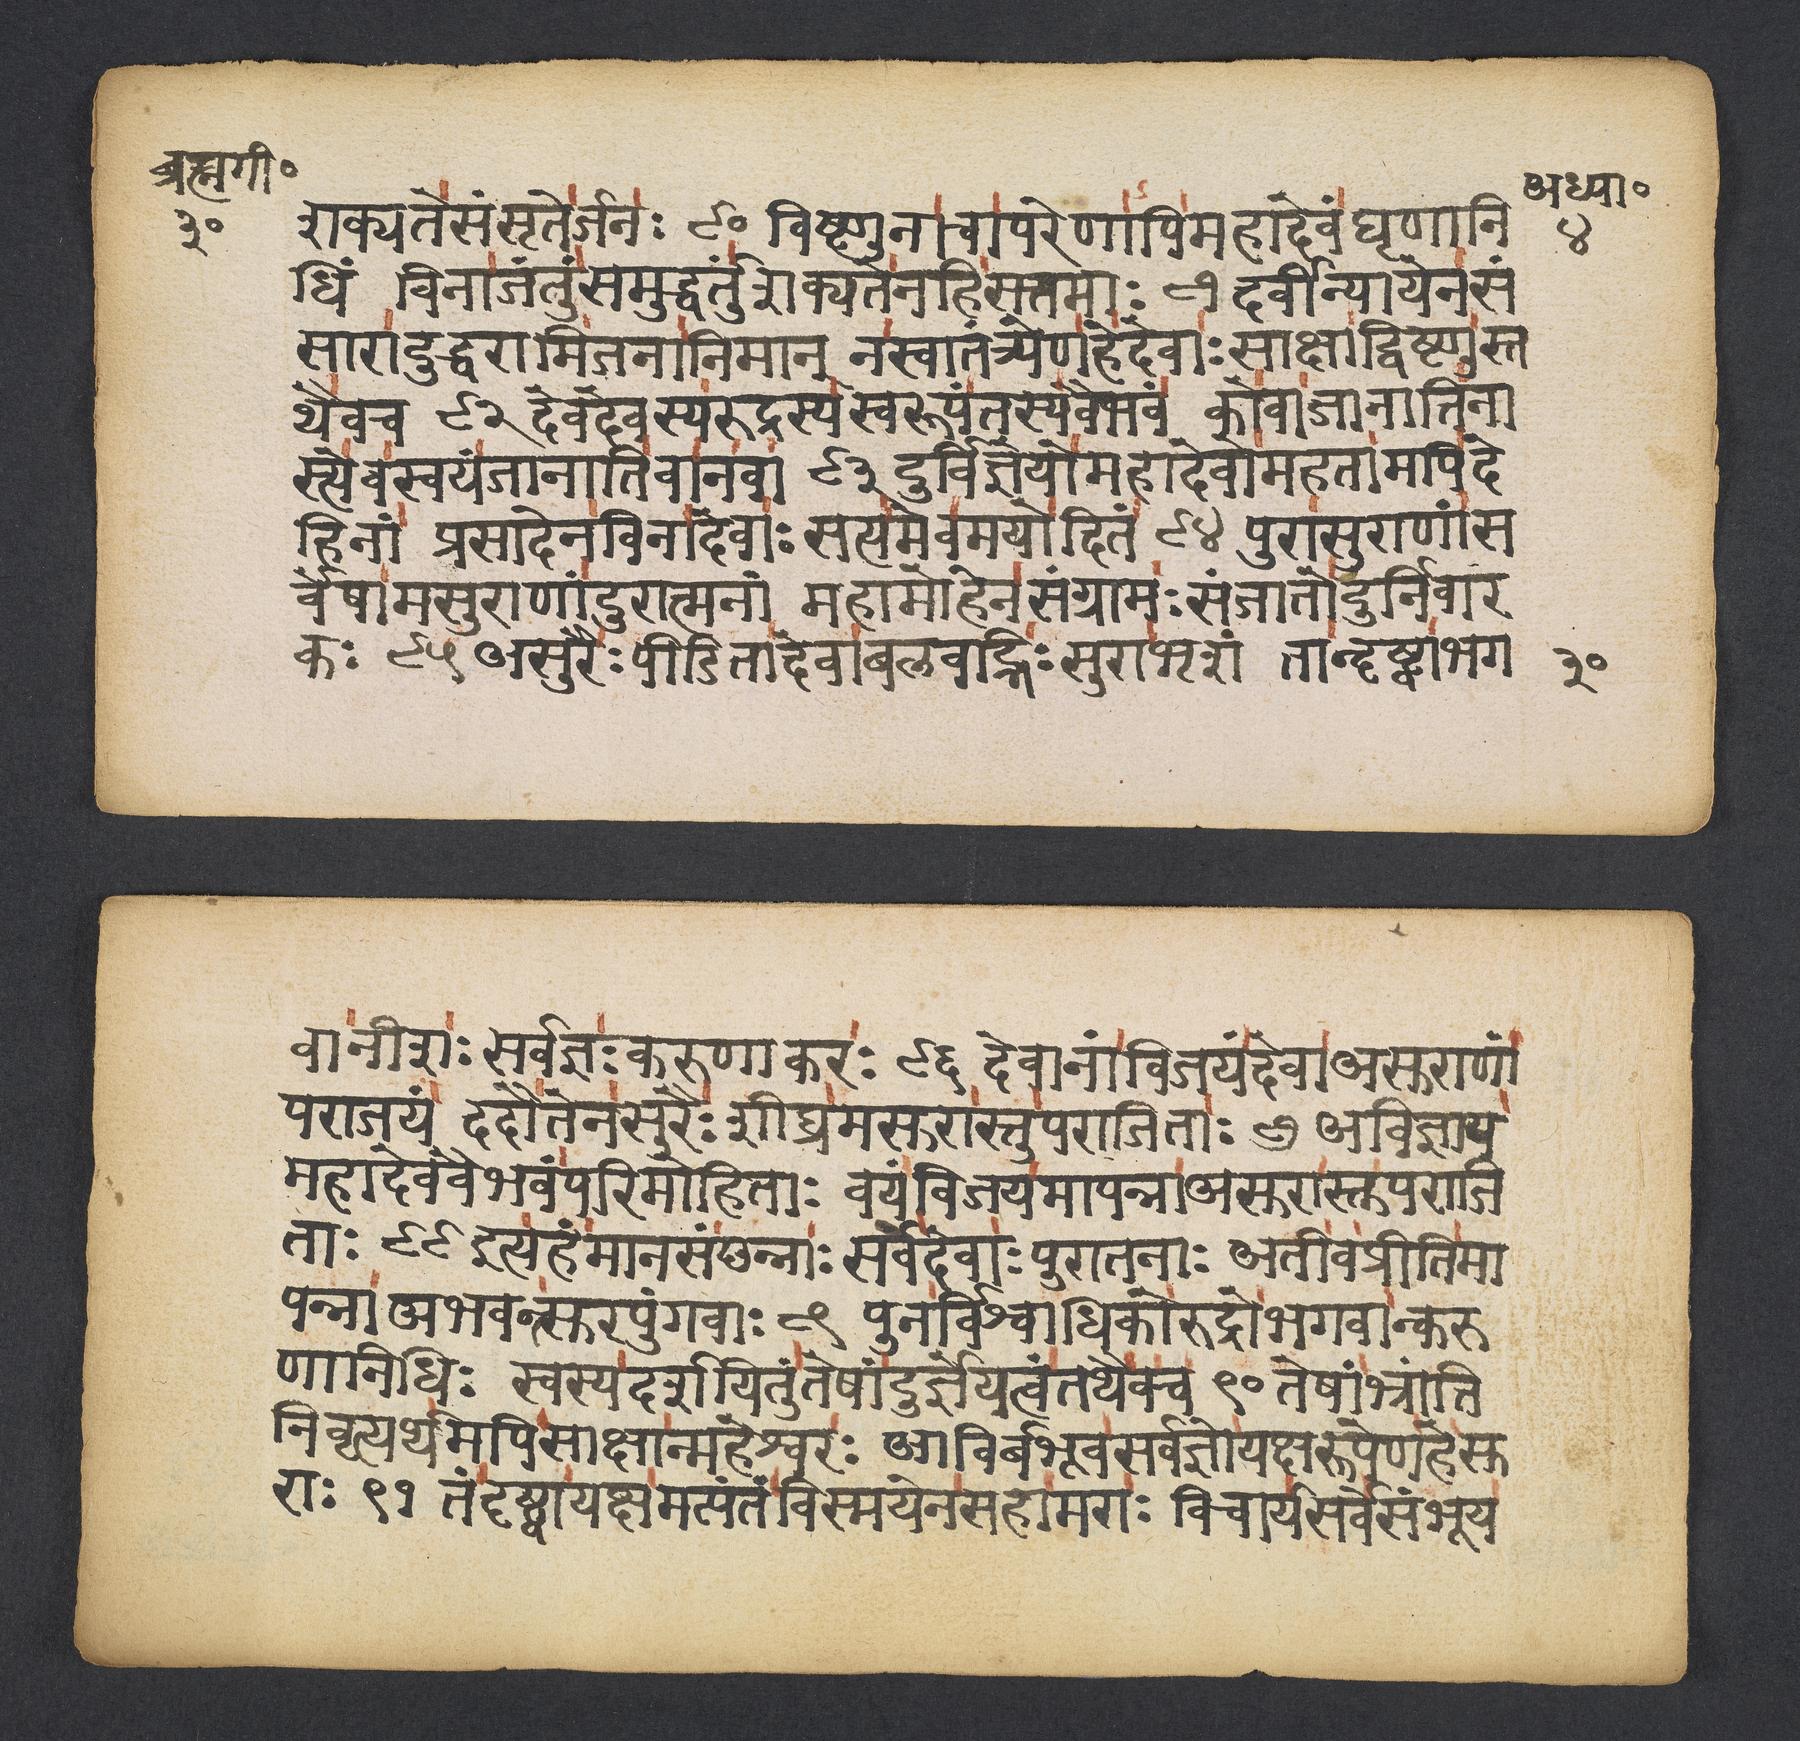 ब्रह्मगी०
३०
अध्या०
४
शक्यतेसंसृतेर्जनः ८० विष्णुनाचापरेणापिमहादेवंघृणानि
धिं विनाजंतुंसमुद्धर्तुंशक्यतेनहिसत्तमाः ८१ दर्वीन्यायेनसं
सारादुद्धरामिजनानिमान् नस्वातंत्र्येणहेदेवाः साक्षाद्विष्णुस्त
थैवच ८२ देवदेवस्यरुद्रस्यस्वरूपंतस्यवैभवं कोवाजानातिना
स्त्येवस्वयंजानातिवानवा ८३ दुर्विज्ञेयोमहादेवोमहतामपिदे
हिनां प्रसादेनविनादेवाः सत्यमेवमयोदितं ८४ पुरासुराणांस
र्वेषामसुराणांदुरात्मनां महामोहेनसंग्रामः संजातोदुर्निवार
कः ८५ असुरैः पीडितादेवाबलवद्भिः सुराभृशं तान्दृष्ट्वाभग
३०
वानीशः सर्वज्ञः करुणाकरः ८६ देवानांविजयंदेवाअसुराणां
पराजयं ददौतेनसुरैः शीघ्रमसुरास्तुपराजिताः ८७ अविज्ञाय
महादेववैभवंपरिमोहिताः वयंविजयमापन्नाअसुरास्तुपराजि
ताः ८८ इत्यहंमानसंछन्नाः सर्वेदेवाः पुरातनाः अतीवप्रीतिमा
पन्नाअभवन्सुरपुंगवाः ८९ पुनर्विश्वाधिकोरुद्रोभगवान्करु
णानिधिः स्वस्यदर्शयितुंतेषांदुर्ज्ञेयत्वंतथैवच ९० तेषांभ्रांति
निवृत्यर्थमपिसाक्षान्महेश्वरः आविर्बभूवसर्वज्ञोयक्षरूपेणहेसु
राः ९१ तंदृष्ट्वायक्षमत्यंतंविस्मयेनसहामराः विचार्यसर्वेसंभूय